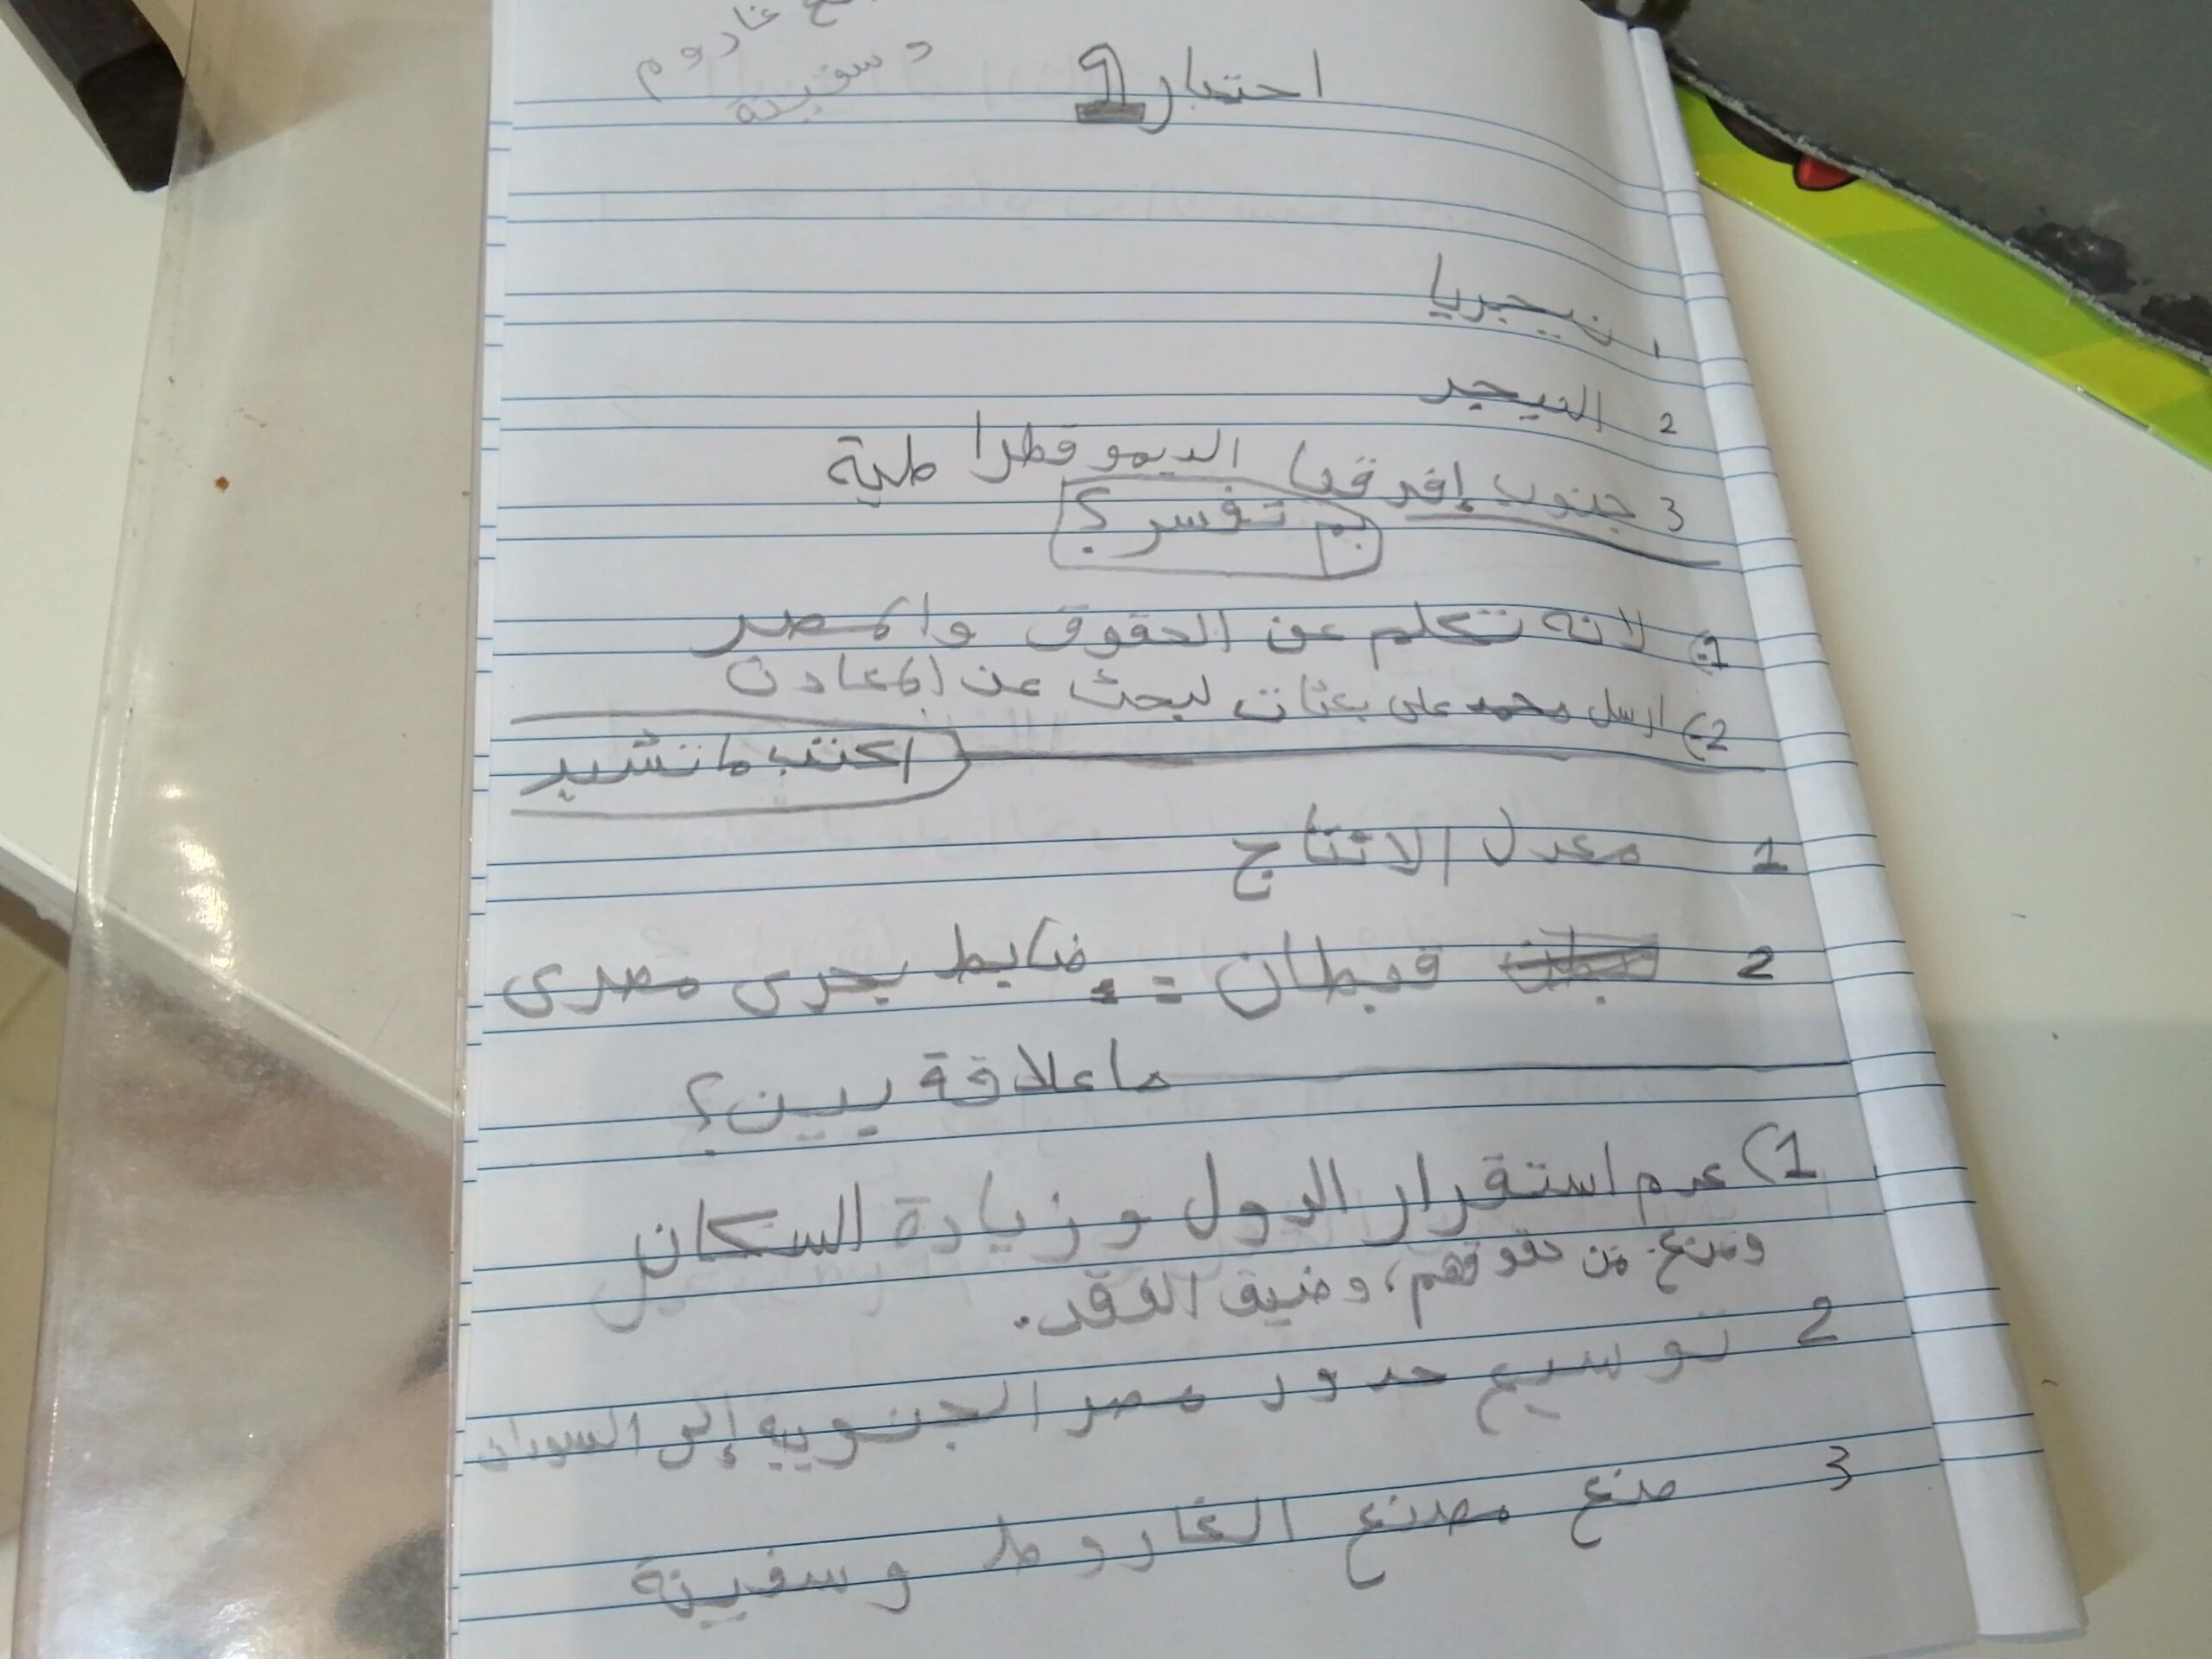 احتبار 9
و سفينة
1 نيجريا
2 النيجر
3 جنوب إفرقيا الديموقطرا طية
بم تفسر؟
1- لانه تكلم عن الحقوق والمصر
2- ارسل محمد على بعثات لبحث عن المعادن
اكتب ما تشير
1 معدل الانتاج
2 قبطان = ضابط بحرى مصرى
ما علاقة بين؟
1) عدم استقرار الدول و زيادة السكان
ومنع من حقوقهم، وضيق الفقر.
2 توسيع حدود مصر الجنوبيه إلى السودان
3 صنع مصنع الغاروط وسفينة